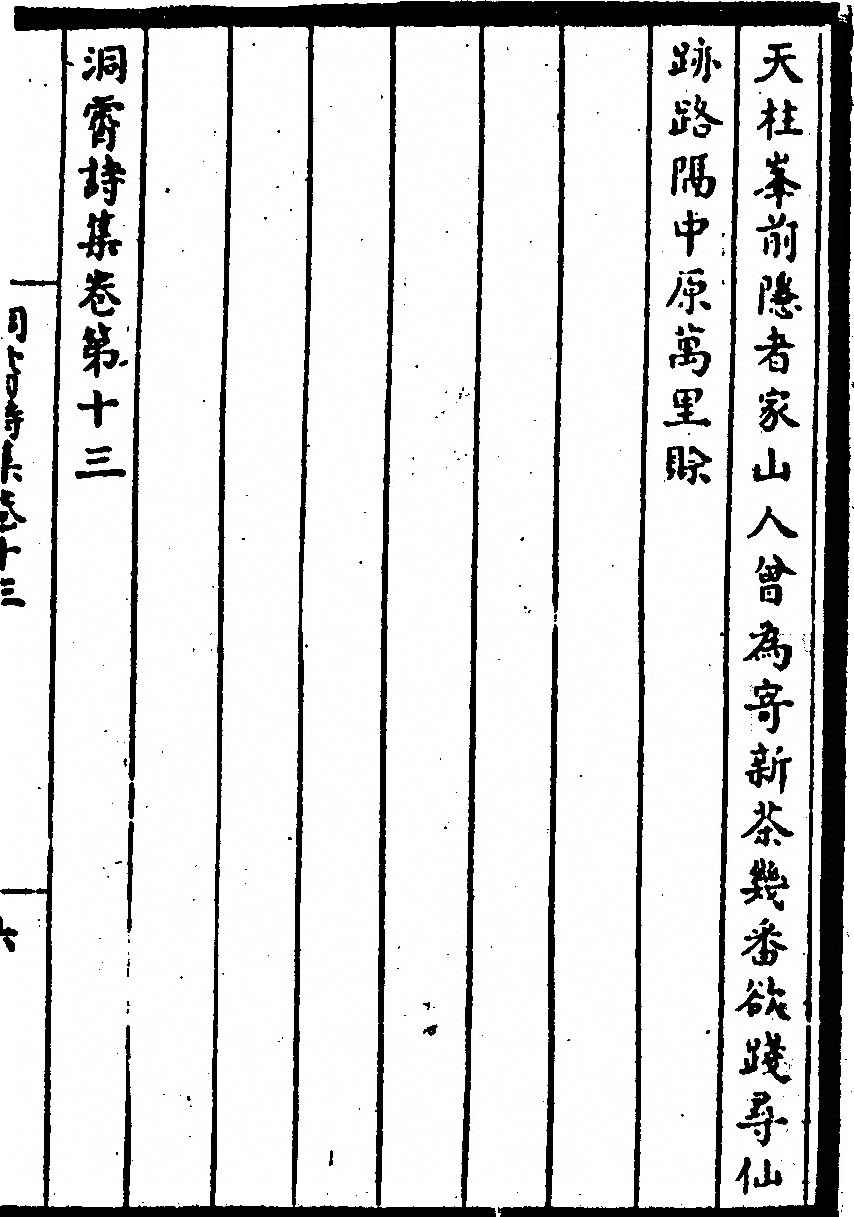 天柱峯前隱者家山人曾為寄新茶幾番欲踐尋仙
跡路隔中原萬里賒
洞霄詩集卷第十三
洞霄詩集卷十三
六